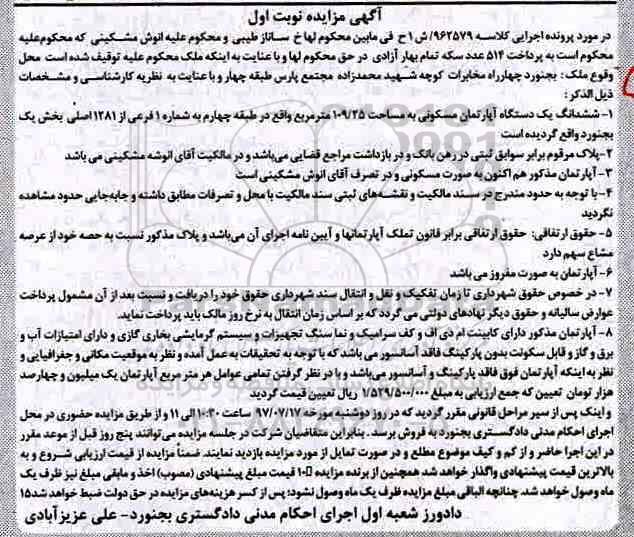 آگهی مزایده نوبت اول
در مورد پرونده اجرایی کلاسه ۹۶۲۵۷۹/ ش ۱ ح فی مابین محکوم لها خ ساناز طیبی و محکوم علیه انوش مشکینی که محکوم‌علیه
محکوم است به پرداخت ۵۱۴ عدد سکه تمام بهار آزادی در حق محکوم لها و با عنایت به اینکه ملک محکوم علیه توقیف شده است محل
وقوع ملک: بجنورد چهارراه مخابرات کوچه شهید محمدزاده مجتمع پارس طبقه چهار و با عنایت به نظریه کارشناسی و مشخصات
ذیل الذکر:
۱- ششدانگ یک دستگاه آپارتمان مسکونی به مساحت ۱۰۹/۲۵ مترمربع واقع در طبقه چهارم به شماره ۱ فرعی از ۱۲۸۱ اصلی بخش یک
بجنورد واقع گردیده است
۲-پلاک مرقوم برابر سوابق ثبتی در رهن بانک و در بازداشت مراجع قضایی می‌باشد و در مالکیت آقای انوشه مشکینی می باشد
۳- آپارتمان مذکور هم اکنون به صورت مسکونی و در تصرف آقای انوش مشکینی است
۴-با توجه به حدود مندرج در سند مالکیت و نقشه‌های ثبتی سند مالکیت با محل و تصرفات مطابق داشته و جابه‌جایی حدود مشاهده
نگردید
۵- حقوق ارتفاقی: حقوق ارتفاقی برابر قانون تملک آپارتمانها و آیین نامه اجرای آن می‌باشد و پلاک مذکور نسبت به حصه خود از عرصه
مشاع سهم دارد
۶- آپارتمان به صورت مفروز می باشد
۷- در خصوص حقوق شهرداری تا زمان تفکیک و نقل و انتقال سند شهرداری حقوق خود را دریافت و نسبت بعد از آن مشمول پرداخت
عوارض سالیانه و حقوق دیگر نهادهای دولتی می گردد که بر اساس زمان انتقال به نرخ روز مالک باید پرداخت نماید.
۸- آپارتمان مذکور دارای کابینت ام دی اف و کف سرامیک و نما سنگ تجهیزات و سیستم گرمایشی بخاری گازی و دارای امتیازات آب و
برق و گاز و قابل سکونت بدون پارکینگ فاقد آسانسور می باشد که با توجه به تحقیقات به عمل آمده و نظر به موقعیت مکانی و جغرافیایی و
نظر به اینکه آپارتمان فوق فاقد پارکینگ و آسانسور می‌باشد و با در نظر گرفتن تمامی عوامل هر متر مربع آپارتمان یک میلیون و چهارصد
هزار تومان تعیین که جمع ارزیابی به مبلغ ۱/۵۲۹/۵۰۰/۰۰۰ ریال تعیین قیمت گردید
و اینک پس از سیر مراحل قانونی مقرر گردید که در روز دوشنبه مورخه ۹۷/۰۷/۱۷ ساعت ۱۰:۳۰ الی ۱۱ و از طریق مزایده حضوری در محل
اجرای احکام مدنی دادگستری بجنورد به فروش برسد. بنابراین متقاضیان شرکت در جلسه مزایده می‌توانند پنج روز قبل از موعد مقرر
در این اجرا حاضر و از کم و کیف موضوع مطلع و در صورت تمایل از مورد مزایده بازدید نمایند. ضمناً مزایده از قیمت ارزیابی شروع و به
بالاترین قیمت پیشنهادی واگذار خواهد شد همچنین از برنده مزایده ۱۰٪ قیمت مبلغ پیشنهادی (مصوب) اخذ و مابقی مبلغ نیز ظرف یک
ماه وصول خواهد شد. چنانچه الباقی مبلغ مزایده ظرف یک ماه وصول نشود؛ پس از کسر هزینه‌های مزایده در حق دولت ضبط خواهد شد۱۵
دادورز شعبه اول اجرای احکام مدنی دادگستری بجنورد- علی عزیزآبادی